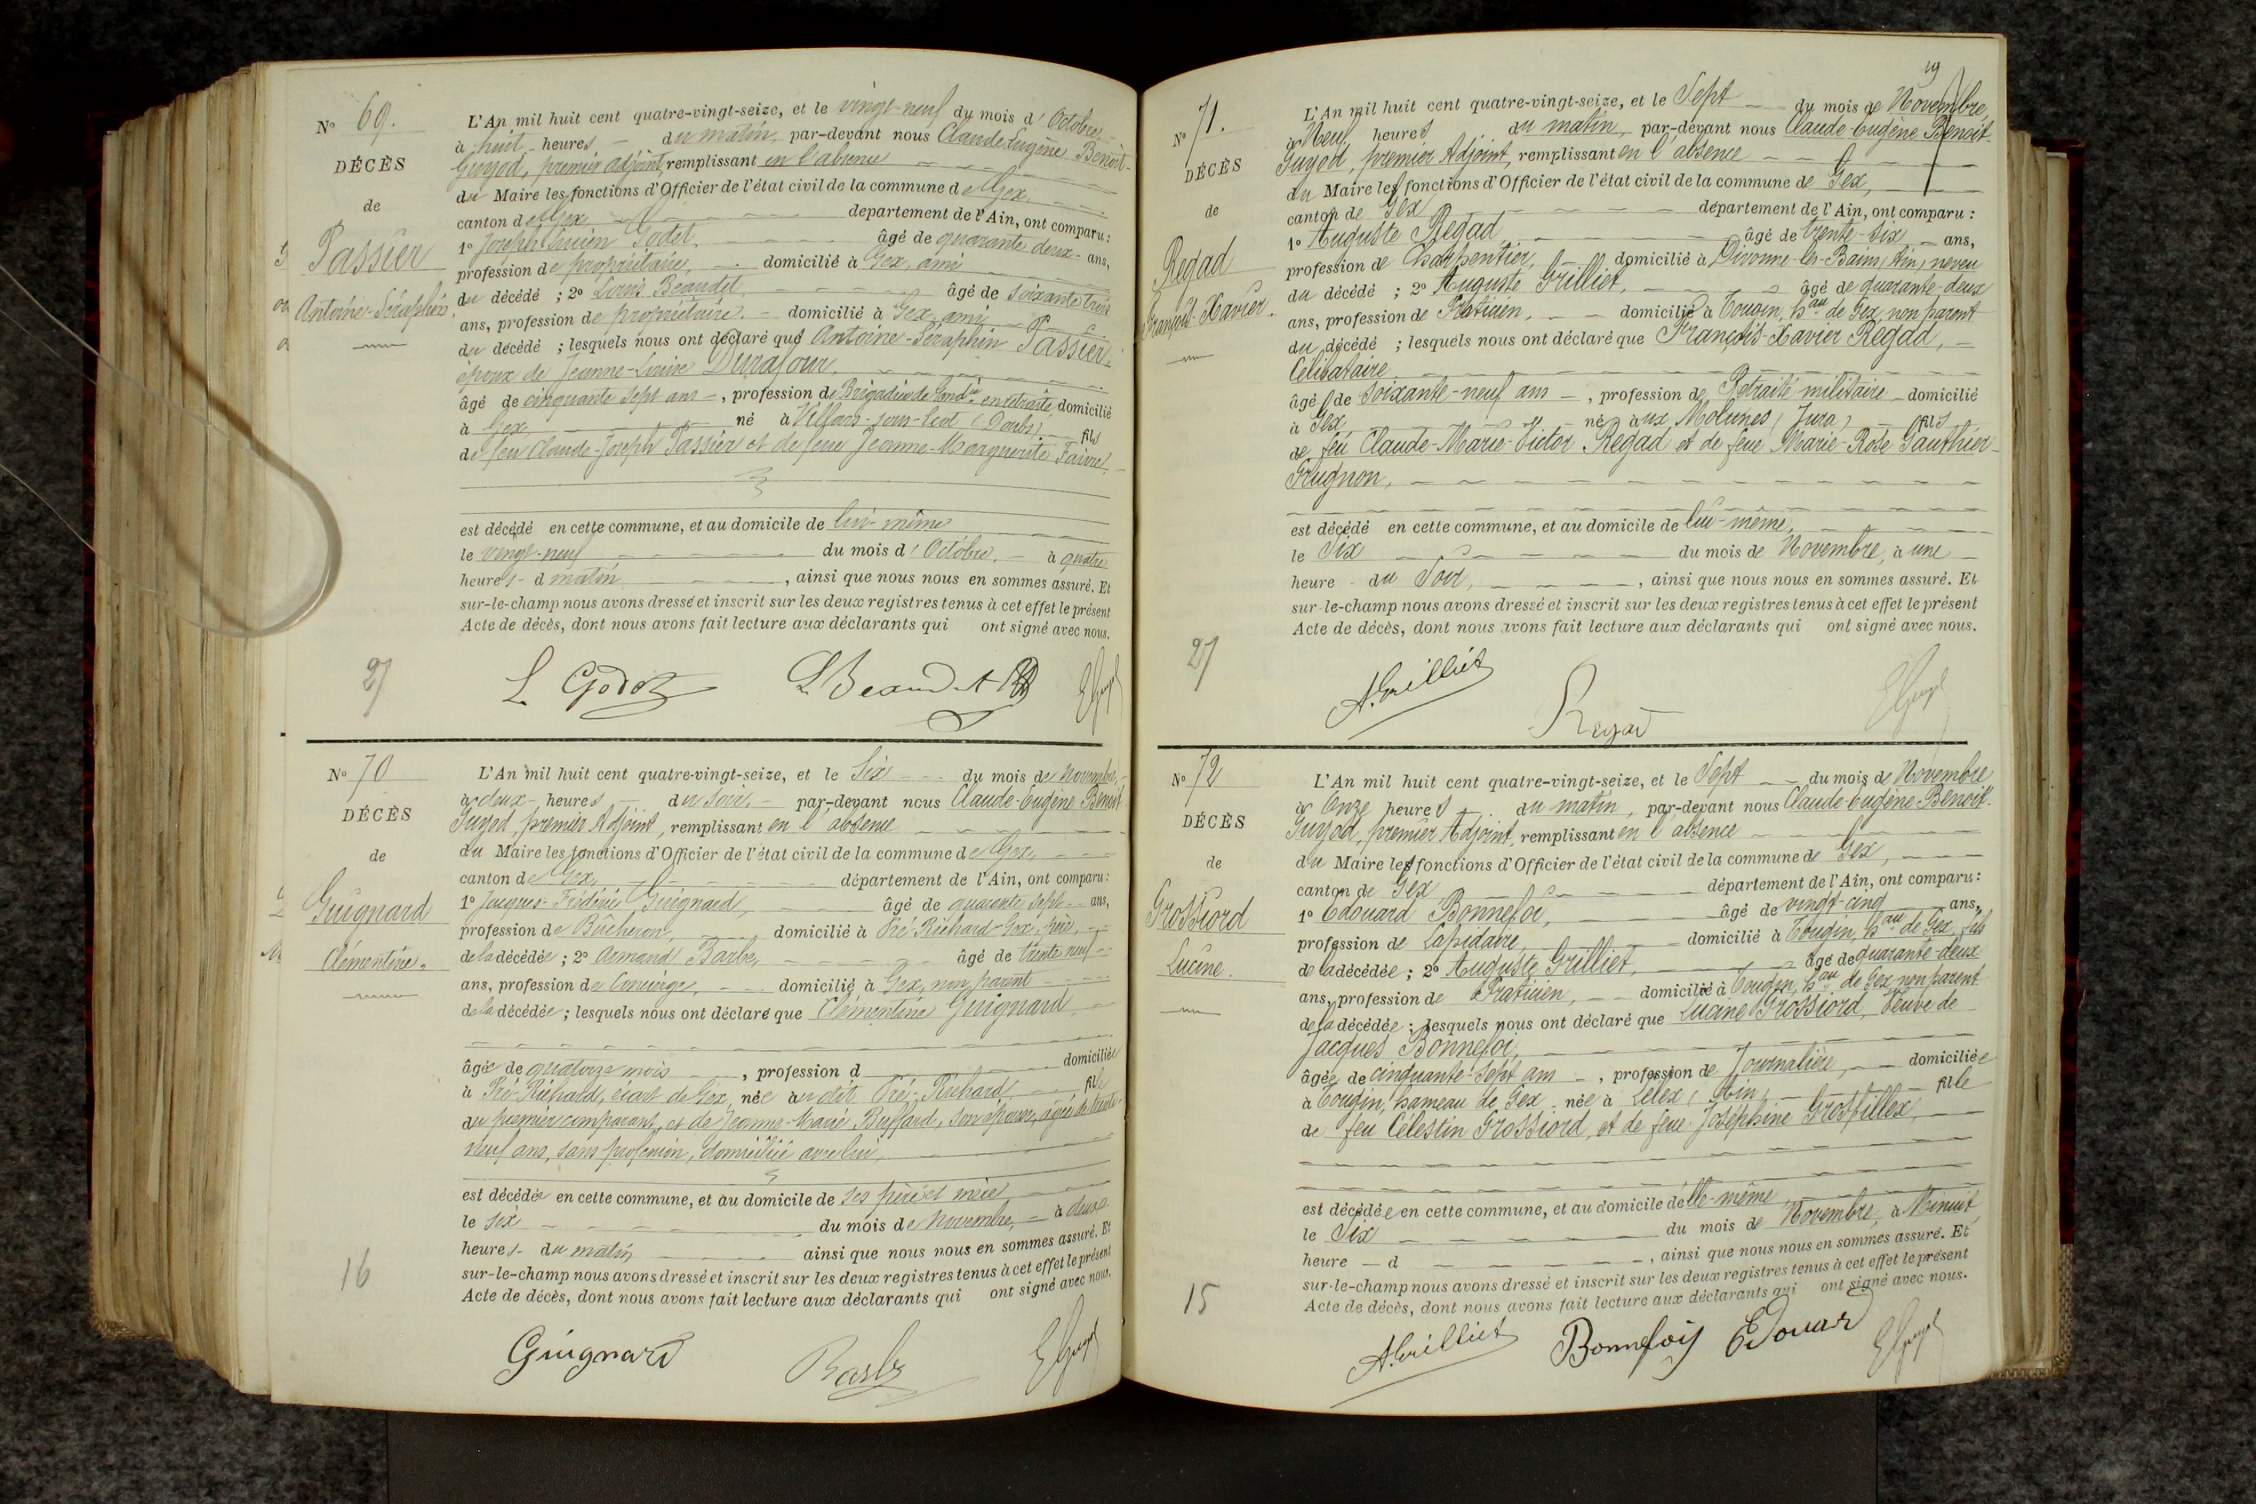 No 69.
DÉCÈS
de
Passier
Antoine-Séraphin.
L'An mil huit cent quatre-vingt-seize, et le vingt-neuf du mois d'Octobre
à huit heures du matin, par-devant nous Claude Eugène Benoit-
Guyod, premier adjoint, remplissant en l'absence
du Maire les fonctions d'Officier de l'état civil de la commune de Gex
canton de Gex département de l'Ain, ont comparu:
1o Joseph Lucien Godet, âgé de quarante deux ans,
profession de propriétaire, domicilié à Gex, ami
du décédé ; 2o Louis Beaudet âgé de soixante trois
ans, profession de propriétaire domicilié à Gex, ami
du décédé ; lesquels nous ont déclaré que Antoine-Séraphin Passier
époux de Jeanne-Louise Durafour,
âgé de cinquante sept ans, profession de Brigadier de Gendie en retraite domicilié
à Gex né à Villars-sous- (Doubs) fils
de feu Claude-Joseph Passier et de feue Jeanne-Marguerite Faivre
est décédé en cette commune, et au domicile de lui-même
le vingt-neuf du mois d'Octobre, à quatre
heures d matin, ainsi que nous nous en sommes assuré. Et
sur-le-champ nous avons dressé et inscrit sur les deux registres tenus à cet effet le présent
Acte de décès, dont nous avons fait lecture aux déclarants qui ont signé avec nous.
27
L. Godet L. Beaudet
No 70
DÉCÈS
de
Guignard
Clémentine.
L'An mil huit cent quatre-vingt-seize, et le Six du mois de Novembre,
à deux heures du soir, par-devant nous Claude-Eugène Benoit
Guyod, premier Adjoint, remplissant en l'absence
du Maire les fonctions d'Officier de l'état civil de la commune de Gex,
canton de Gex, département de l'Ain, ont comparu:
1o Jacques-Frédéric Guignard, âgé de quarante sept ans,
profession de Bûcheron, domicilié à Pré-Richard-Gex, père,
de la décédée ; 2o Armand Barbe, âgé de trente neuf
ans, profession de Concierge, domicilié à Gex, non parent
de la décédée ; lesquels nous ont déclaré que Clémentine Guignard
âgée de quatorze mois, profession d domiciliée
à Pré-Richard, écart de Gex, née au dit Pré-Richard, fille
du premier comparant, et de Jeanne-Marie Buffard, son épouse, âgée de trente-
neuf ans, sans profession, domiciliée avec lui,
est décédée en cette commune, et au domicile de ses père et mère,
le six du mois de Novembre, à deux
heures du matin, ainsi que nous nous en sommes assuré. Et
sur-le-champ nous avons dressé et inscrit sur les deux registres tenus à cet effet le présent
Acte de décès, dont nous avons fait lecture aux déclarants qui ont signé avec nous.
16
Guignard Barbe
No 71.
DÉCÈS
de
Regad
François-Xavier.
L'An mil huit cent quatre-vingt-seize, et le Sept du mois de Novembre,
à Neuf heures du matin, par-devant nous Claude-Eugène Benoit-
Guyod, premier Adjoint, remplissant en l'absence
du Maire les fonctions d'Officier de l'état civil de la commune de Gex,
canton de Gex département de l'Ain, ont comparu :
1o Auguste Regad âgé de trente-six ans,
profession de Charpentier, domicilié à Divonne-les-Bains (Ain) neveu
du décédé ; 2o Auguste Grilliet, âgé de quarante-deux
ans, profession de Praticien, domicilié à Tougin, hau de Gex, non parent
du décédé ; lesquels nous ont déclaré que François-Xavier Regad,
Célibataire
âgé de soixante-neuf ans, profession de Retraité militaire domicilié
à Gex né aux Molunes (Jura) fils
de feu Claude-Marie-Victor Regad et de feue Marie-Rose Gauthier-
Grugnon,
est décédé en cette commune, et au domicile de lui-même,
le Six du mois de Novembre, à une
heure du Soir, ainsi que nous nous en sommes assuré. Et
sur-le-champ nous avons dressé et inscrit sur les deux registres tenus à cet effet le présent
Acte de décès, dont nous avons fait lecture aux déclarants qui ont signé avec nous.
27
A. Grilliet
Regad
No 72
DÉCÈS
de
Grossiord
Lucine.
L'An mil huit cent quatre-vingt-seize, et le Sept du mois de Novembre
à Onze heures du matin, par-devant nous Claude-Eugène Benoit-
Guyod, premier Adjoint, remplissant en l'absence
du Maire les fonctions d'Officier de l'état civil de la commune de Gex,
canton de Gex département de l'Ain, ont comparu :
1o Edouard Bonnefoi, âgé de vingt-cinq ans,
profession de Lapidaire, domicilié à Tougin, hau de Gex, fils
de la décédée ; 2o Auguste Grilliet, âgé de quarante-deux
ans, profession de Praticien, domicilié à Tougin, hau de Gex non parent
de la décédée ; lesquels nous ont déclaré que Lucine Grossiord, Veuve de
Jacques Bonnefoi,
âgée de cinquante-sept ans, profession de Journalière, domiciliée
à Tougin, hameau de Gex, née à Lelex (Ain) fille
de feu Célestin Grossiord, et de feue Joséphine Grosfillex,
est décédée en cette commune, et au domicile d'elle-même
le Six du mois de Novembre, à Minuit
heure d, ainsi que nous nous en sommes assuré. Et
sur-le-champ nous avons dressé et inscrit sur les deux registres tenus à cet effet le présent
Acte de décès, dont nous avons fait lecture aux déclarants qui ont signé avec nous.
15
A. Grilliet Bonnefoy Edouard